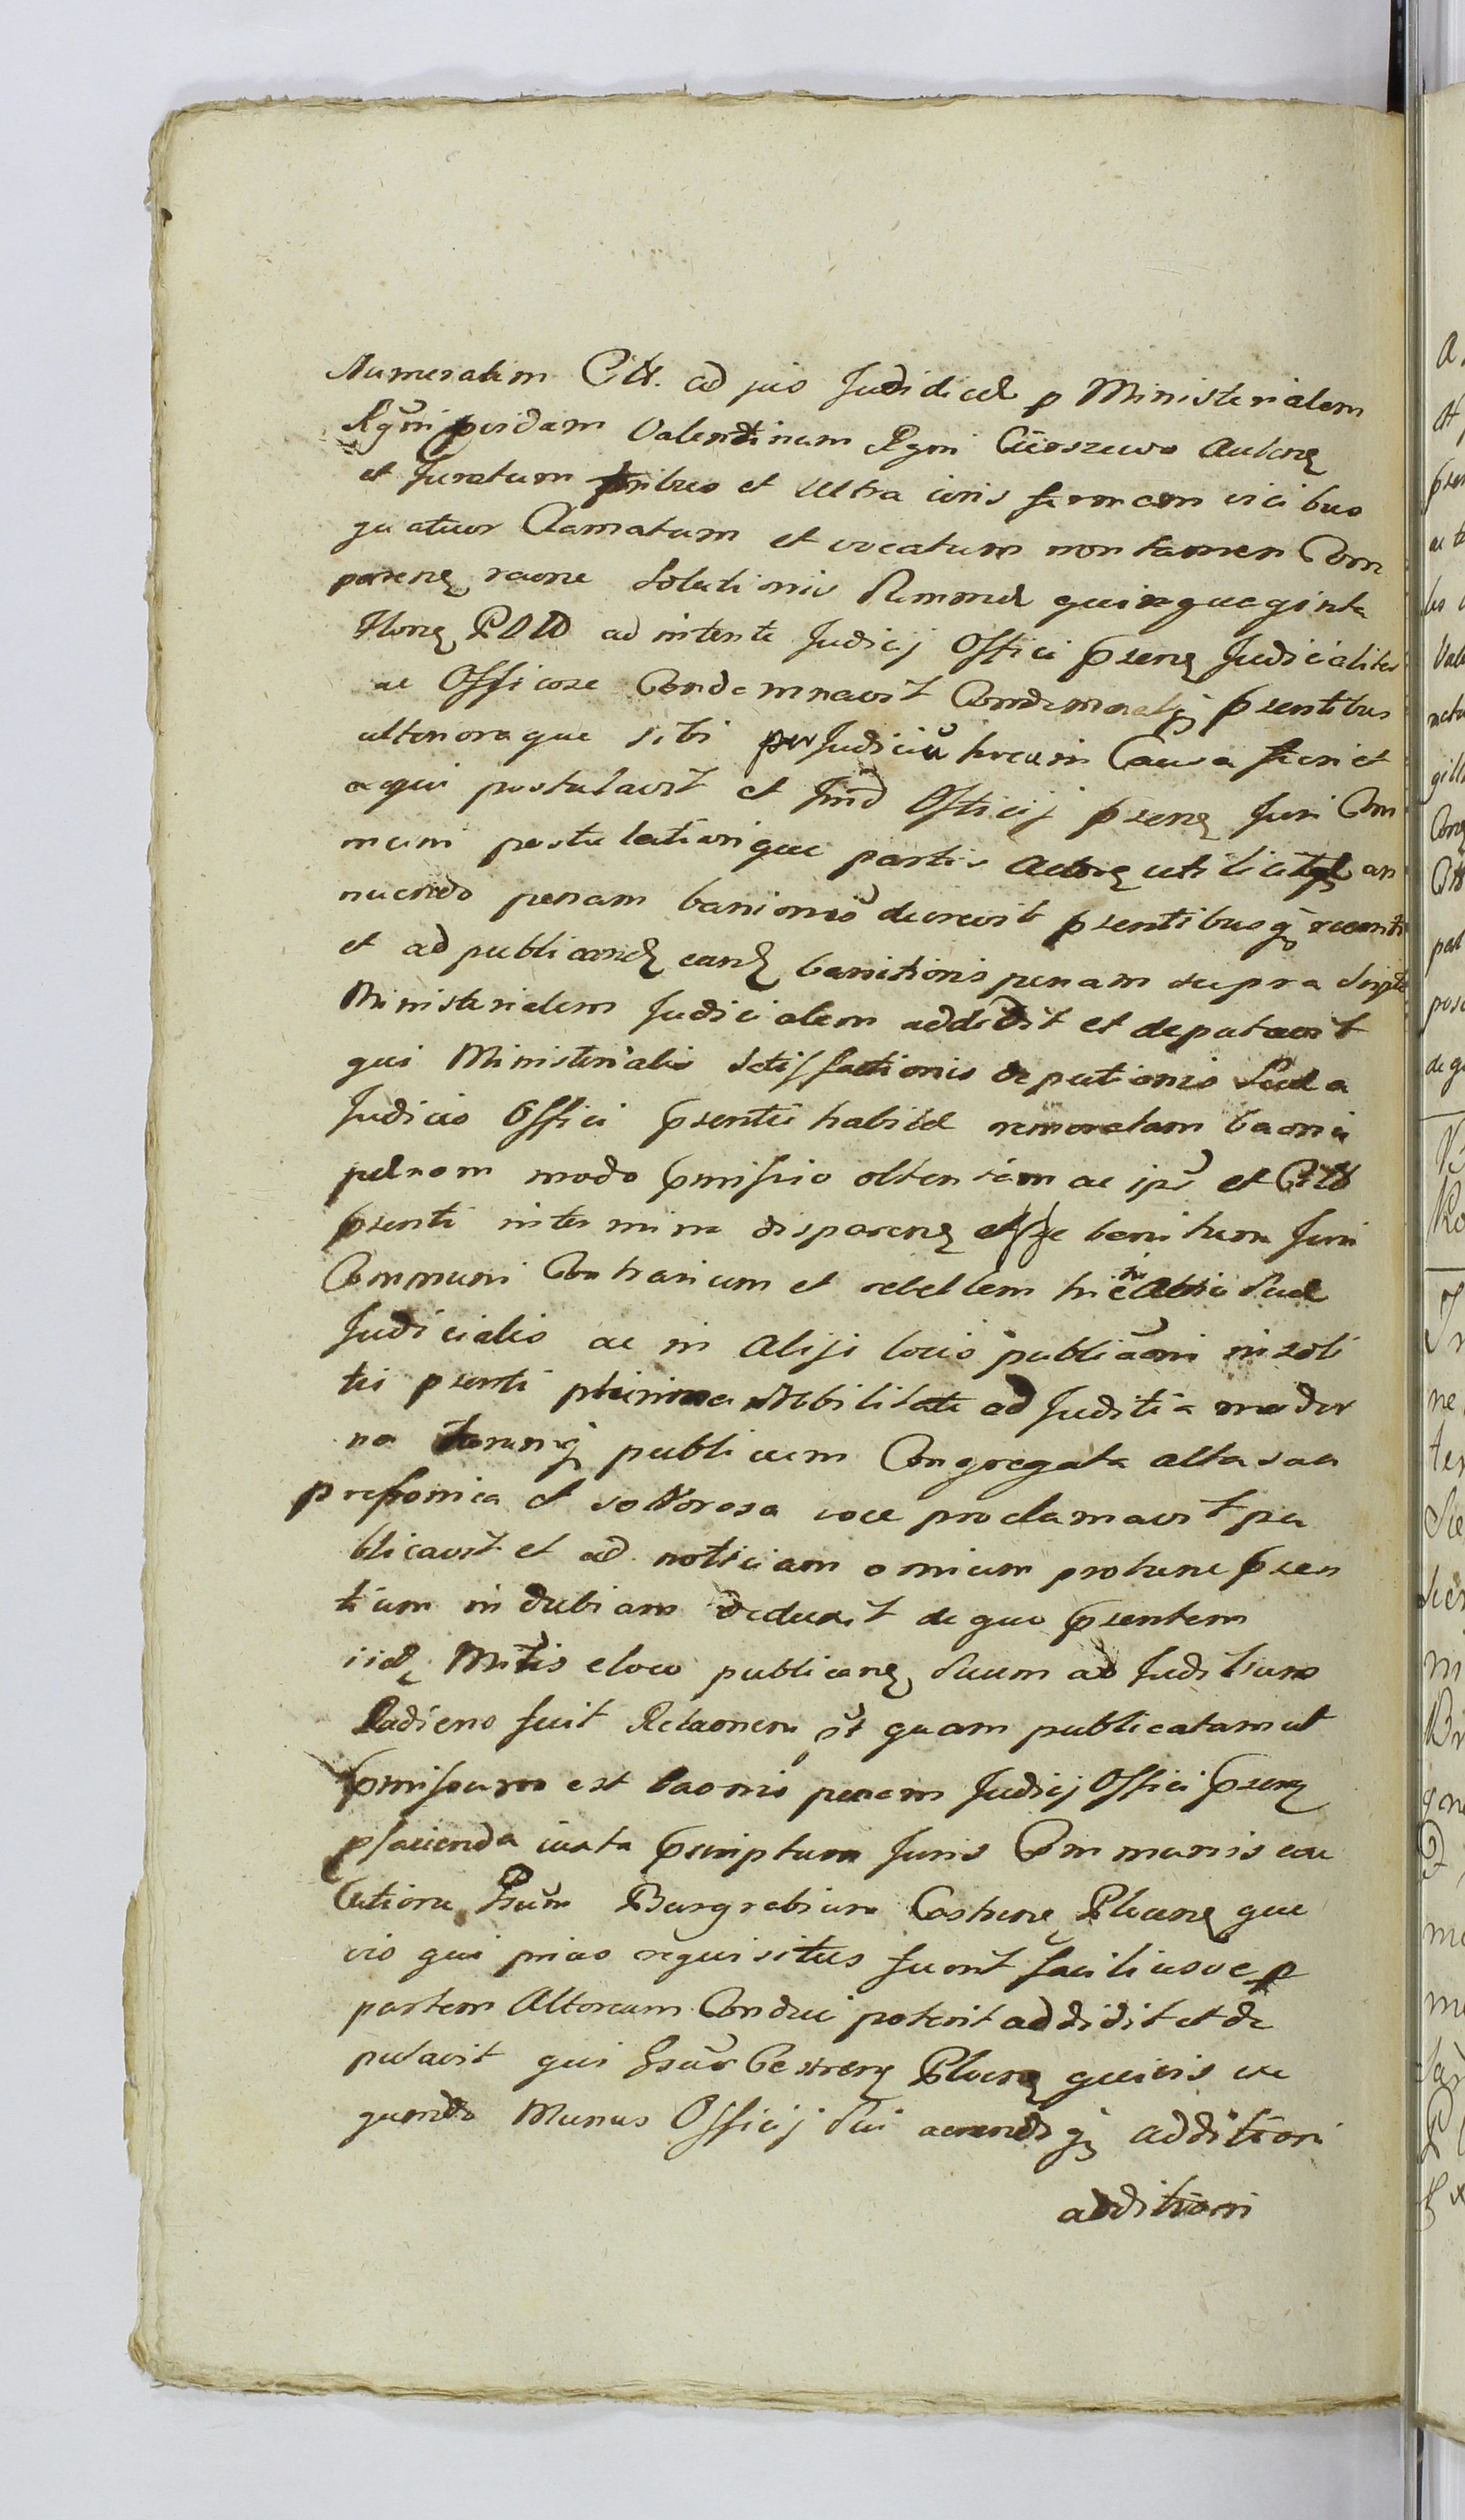 Numeratim Citt. ad jus Judiciale p Ministerialem
Rgni pvidum Valentinum Rgni Cioszewo Auten
et Juratum tribus et ultra iuris formam vicibus
quatuor Clamatum et vocatum non tamen Com
paren raone Solutionis Summæ quinquaginta
Floren PDD ad intente Judicij Offici psen Judicialiter
ac Officose Condemnavit Condemnatq psentibus
ulteriora que sibi per Judiciu hocum Causa fieri et
aqui postulavit et Jud Officij psen Juri Com
muni postulationique partis Actorea utilitatq an
nuendo penam banionis decrevit psentibusq
et ad publicand eand banitionis penam supra Script
Ministerialem Judicialem addidit et deputavit
qui Ministerialis Satisfactionis deputionis Suæ a
Judicio Offici psentis habitæ memoratam baonis
pænam modo pmisso obtentam ac ips et Citt
psenti in termino disparen esse banitum Juri
Communi Contrarium et rebellem hic in Suæ
Judicialis ac in Alijs locis publicaoni insoli
tis psenti plurima Nobilitate ad Juditia moder
na publicum Congregata alta sua
prefonica et sonorosa voce proclamavit pu
blicavit et ad notitiam omnium protunc psen
tium indubiam deduxit de quo psentem
iid Mtlis eloco publican Suum ad Juditium
Radiens fecit Relaonem ost quam publicatam ut
pmissum est baonis penam Judicij Offici psen
pfacienda iuxta pscriptum Juris Communis exe
cutione Gsum Burgrabium Castren Plucen que
vis qui prius requisitus fuerit faciliusve p
partem Altoream Conduci poterit addidit et de
putavit qui Gsus Castren Plucen quivis exe
quendo Munus Officij Sui q additioni
additioni